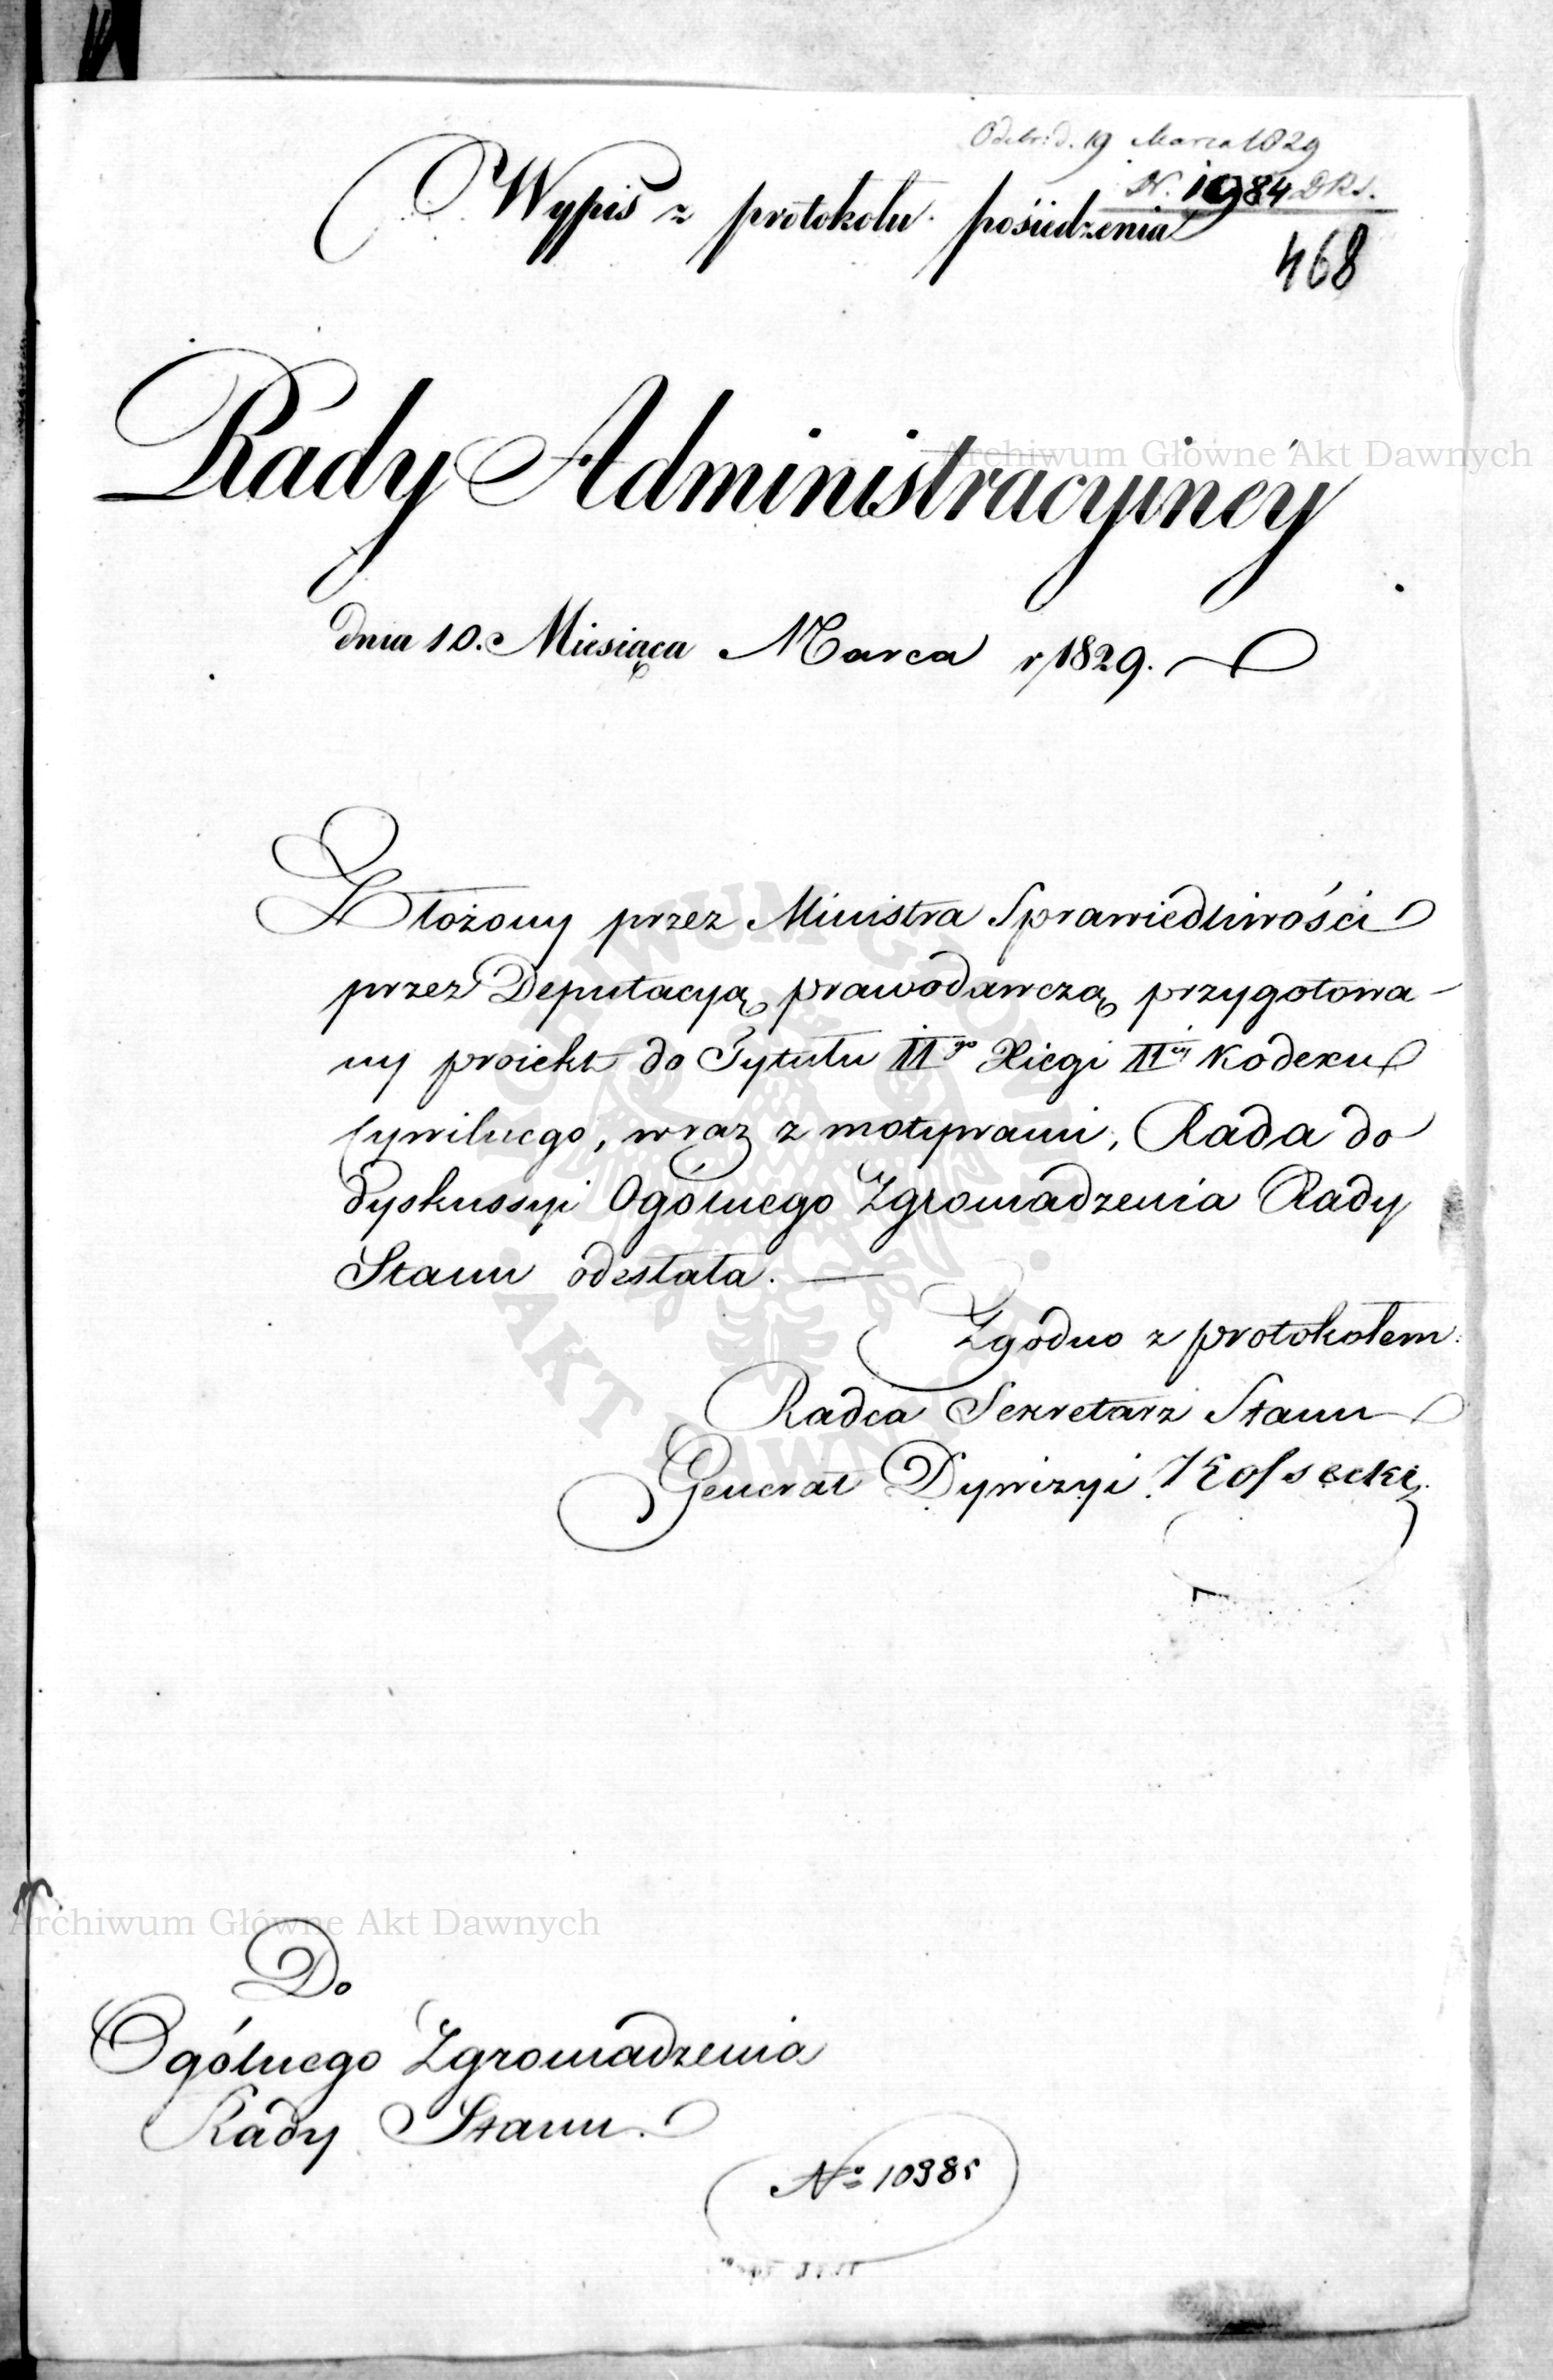 Odebr: d. 19 Marca 1829
N. 1984 DRS.
Wypis z protokołu posiedzenia
468
Rady Administracyiney
dnia 10. Miesiąca Marca r 1829.
Złożony przez Ministra Sprawiedliwości
przez Deputacyą prawodawczą przygotowa-
ny proiekt do Tytułu IIgo Xięgi IIiey Kodexu
Cywilnego, wraz z motywami, Rada do
dyskussyi Ogólnego Zgromadzenia Rady
Stanu odesłała. —
Zgodno z protokołem:
Radca Sekretarz Stanu
Generał Dywizyi Kossecki
Do
Ogólnego Zgromadzenia
Rady Stanu.
No 10985
Archiwum Główne Akt Dawnych
Archiwum Główne Akt Dawnych
ARCHIWUM GŁÓWNE · AKT DAWNYCH ·